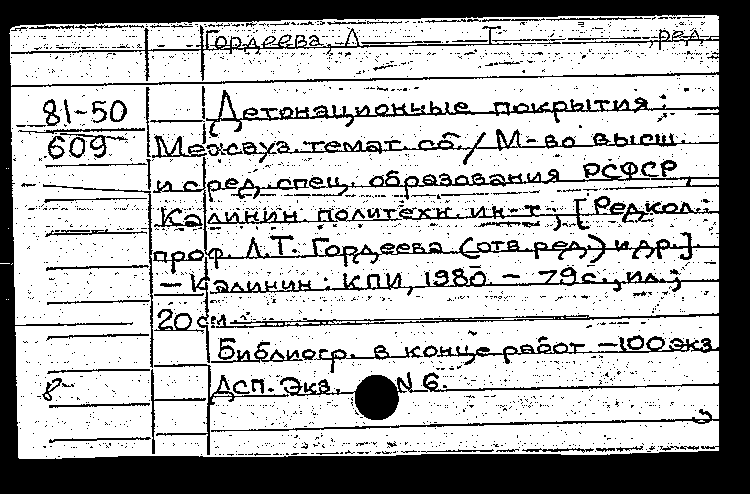 Гордеева, Л Т ,ред.
81-50
609
Детонационные покрытия:
Межвуз. темат. сб./ М-во высш.
и сред. спец. образования РСФСР,
Калинин. политехн. ин-т; [Редкол.:
проф. Л.Т. Гордеева (отв. ред.) и др.].
— Калинин: КПИ, 1980. — 79 с., ил.;
20 см
Библиогр. в конце работ — 100 экз
8- Дсп. Экз. N 6.